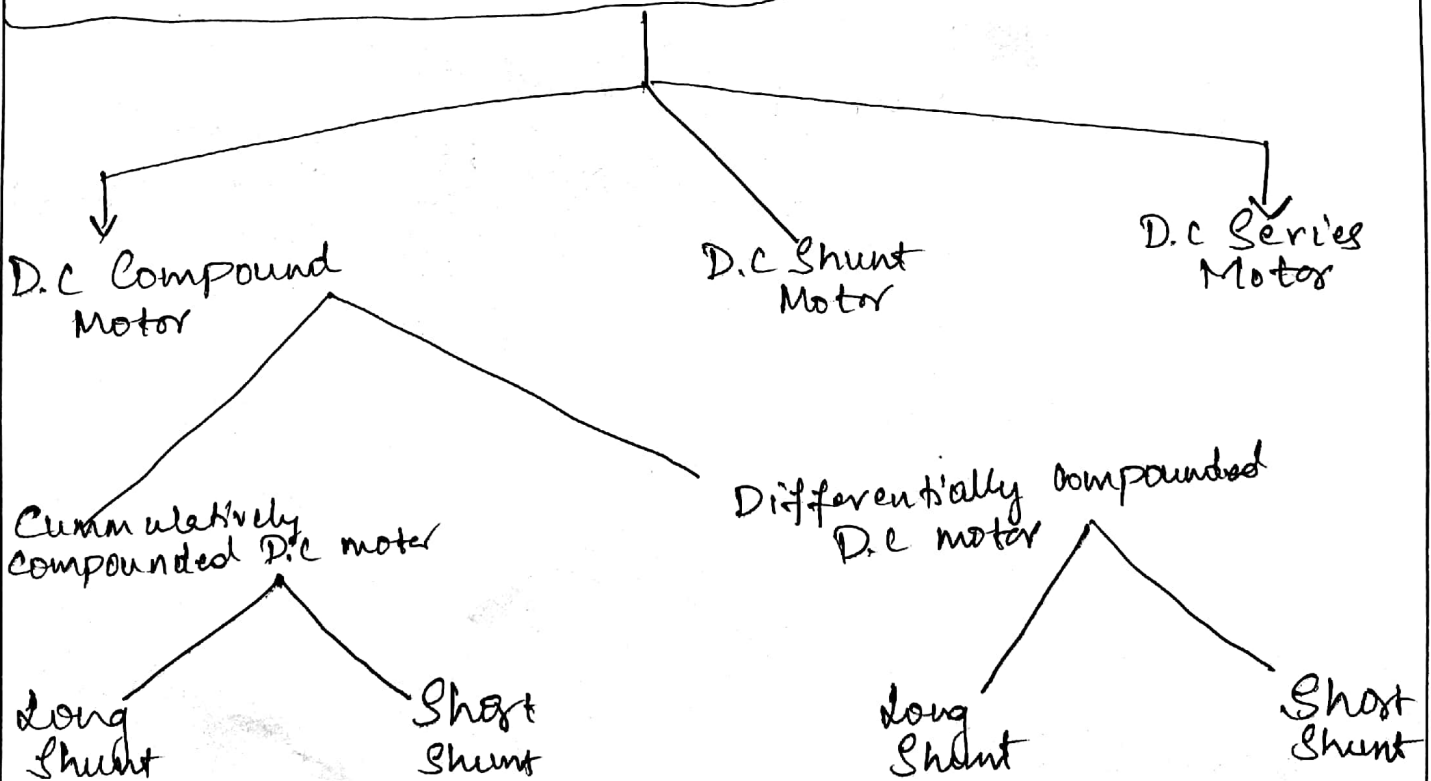 D.C Compound
Motor
D.C Shunt
Motor
D.C Series
Motor
Cummulatively
compounded D.C motor
Differentially compounded
D.C motor
Long
Shunt
Short
Shunt
Long
Shunt
Short
Shunt